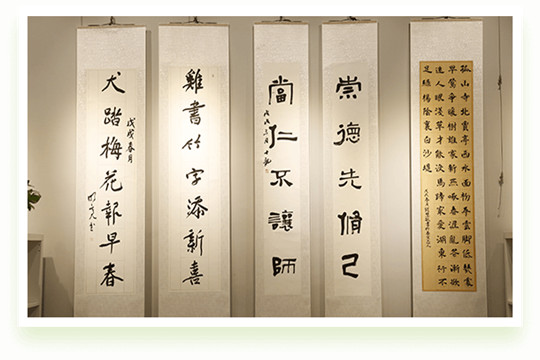 孤山寺北賈亭西水面初平雲腳低幾處
早鶯爭暖樹誰家新燕啄春泥亂花漸欲
迷人眼淺草才能沒馬蹄最愛湖東行不
足綠楊陰裏白沙堤
崇德先脩己
當仁不讓師
雞書竹字添新喜
戊戌春月
犬踏梅花報早春